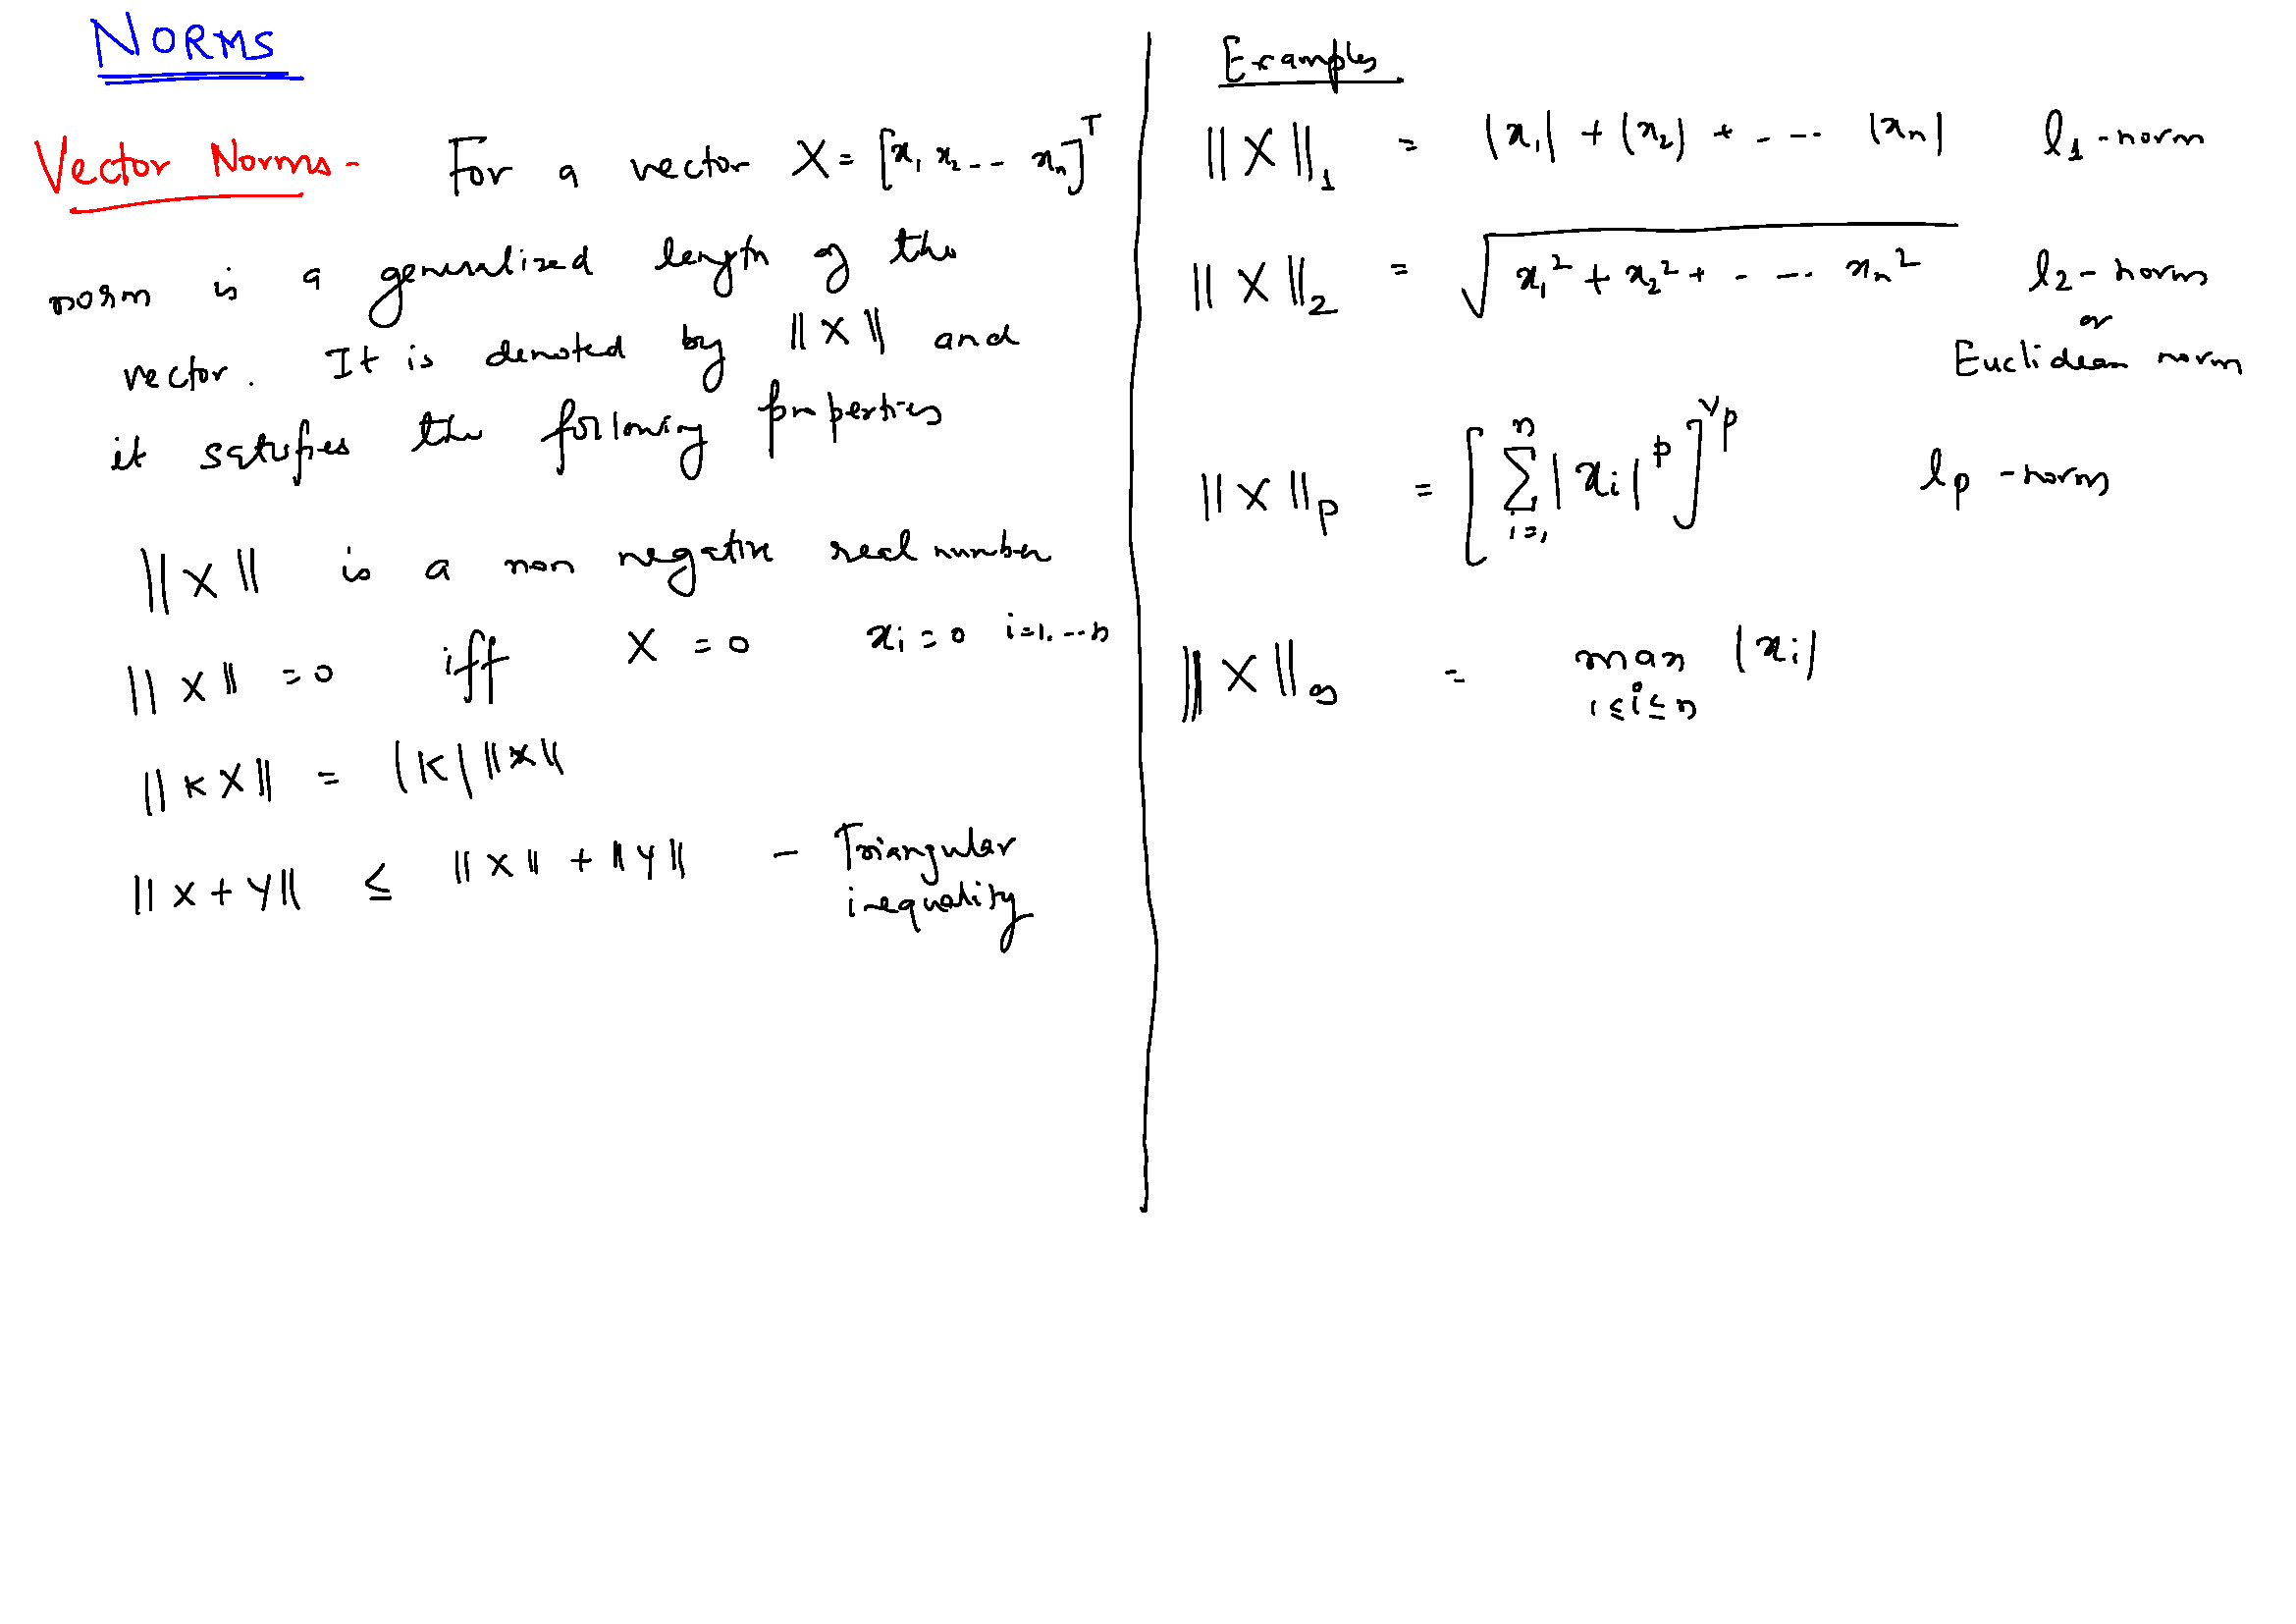 NORMS
Vector Norms - For a vector X = [x₁ x₂ -- xₙ]ᵀ
norm is a generalized length of the
vector. It is denoted by ||X|| and
it satisfies the following properties
||X|| is a non negative real number
||X|| = 0 iff X = 0 xᵢ = 0 i=1, ... n
||KX|| = |K| ||X||
||X + Y|| ≤ ||X|| + ||Y|| - Triangular
inequality
Examples
||X||₁ = |x₁| + |x₂| + - -- |xₙ| l₁ -norm
||X||₂ = √(x₁² + x₂² + - -- xₙ²) l₂ - norm
or
Euclidean norm
||X||ₚ = [∑ᵢ₌₁ⁿ |xᵢ|ᵖ]^1/p lₚ -norm
||X||∞ = max |xᵢ|
1≤i≤n